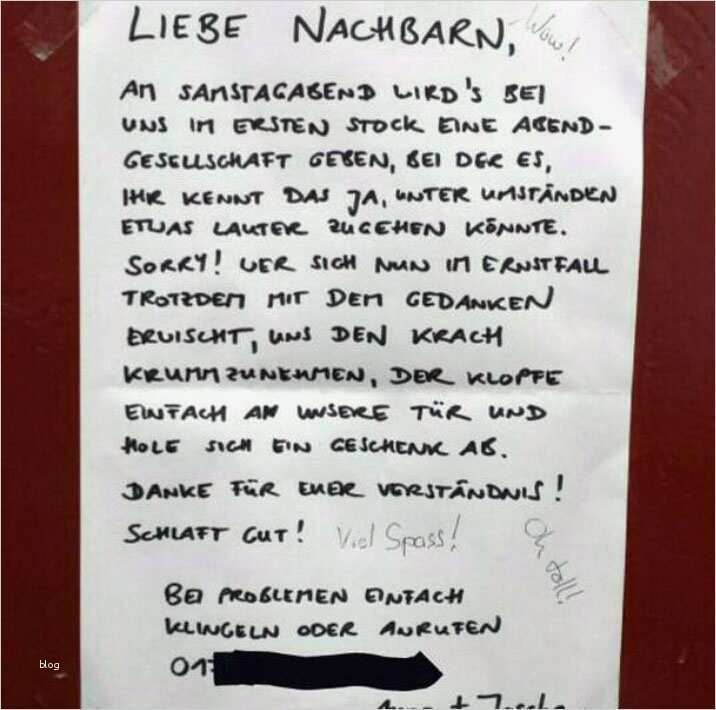 LIEBE NACHBARN,
Wow!
AM SAMSTAGABEND WIRD'S BEI
UNS IM ERSTEN STOCK EINE ABEND-
GESELLSCHAFT GEBEN, BEI DER ES,
IHR KENNT DAS JA, UNTER UMSTÄNDEN
ETWAS LAUTER ZUGEHEN KÖNNTE.
SORRY! WER SICH NUN IM ERNSTFALL
TROTZDEM MIT DEM GEDANKEN
ERWISCHT, UNS DEN KRACH
KRUMMZUNEHMEN, DER KLOPFE
EINFACH AN UNSERE TÜR UND
HOLE SICH EIN GESCHENK AB.
DANKE FÜR EUER VERSTÄNDNIS!
SCHLAFT GUT! Viel Spass!
Oh toll!
BEI PROBLEMEN EINFACH
KLINGELN ODER ANRUFEN
017
blog
+